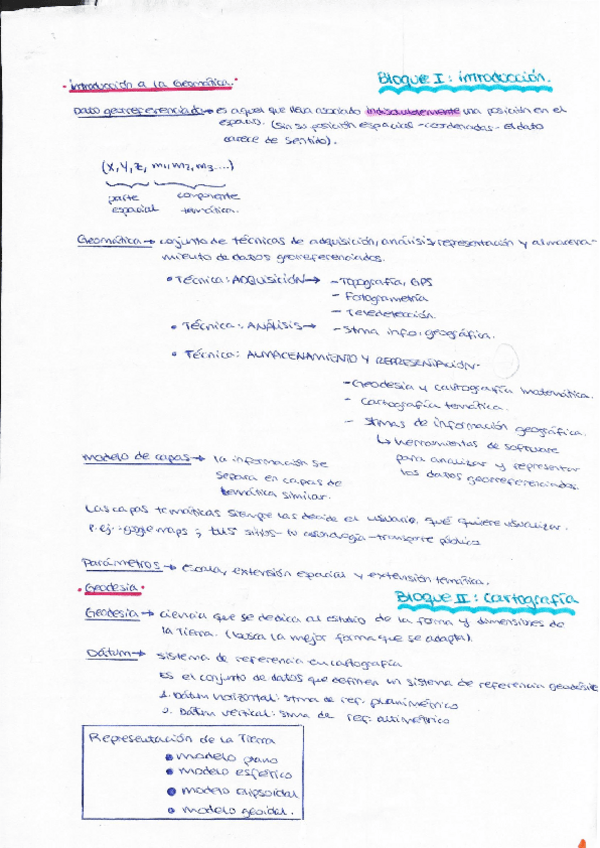 Bloque I: introducción.
• introducción a la Geomática.•
Dato georeferenciado → es aquel que lleva asociado indisolublemente una posición en el
espacio. (sin su posición espacial -coordenadas- el dato
carece de sentido).
(X,Y,Z, m1,m2,m3....)
parte componente
espacial temática.
Geomática → conjunto de técnicas de adquisición, análisis, representación y almacena-
miento de datos georeferenciados.
• Técnica: ADQUISICIÓN → - Topografía, GPS
- Fotogrametría
- Teledetección.
• Técnica: ANÁLISIS → - Stma info. geográfica.
• Técnica: ALMACENAMIENTO Y REPRESENTACIÓN-
- Geodesia y cartografía matemática.
- cartografía temática.
- stmas de información geográfica.
↳ herramientas de software
para analizar y representar
los datos georeferenciados.
modelo de capas → la información se
separa en capas de
temática similar.
Las capas temáticas siempre las decide el usuario, qué quiere visualizar.
P. ej.: google maps ; tus sitios - tu cronología - transporte público
Parámetros → escala, extensión espacial y extensión temática.
• Geodesia.•
Bloque II: Cartografía
Geodesia → ciencia que se dedica al estudio de la forma y dimensiones de
la Tierra. (busca la mejor forma que se adapta).
Dátum → sistema de referencia en cartografía
Es el conjunto de datos que definen un sistema de referencia geodésico
1. Dátum horizontal: stma de ref. planimétrico
2. Dátum vertical: stma de ref. altimétrico
Representación de la Tierra
• modelo plano
• modelo esférico
• modelo elipsoidal
• modelo geoidal.